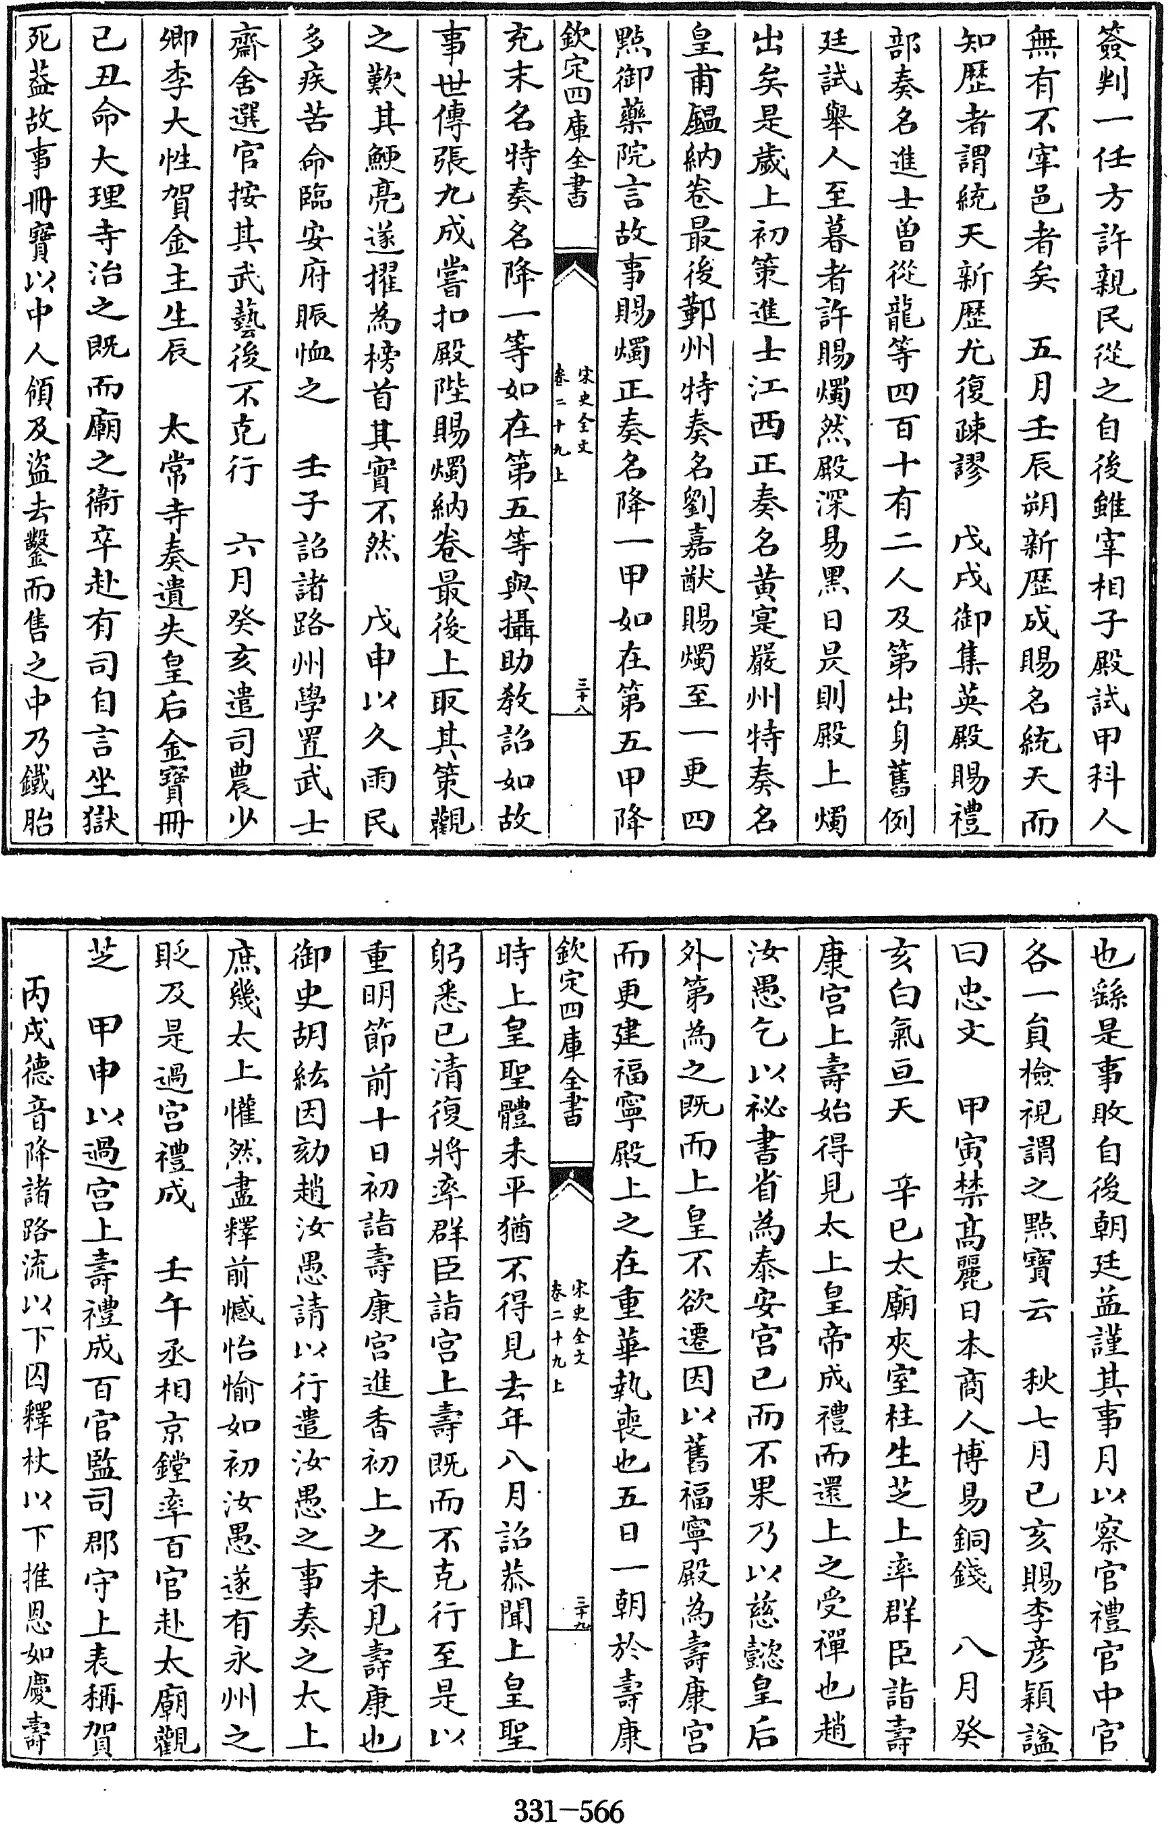 簽判一任方許親民從之自後雖宰相子殿試甲科人
無有不宰邑者矣　五月壬辰朔新歴成賜名統天而
知歴者謂統天新歴尤復疎謬　戊戌御集英殿賜禮
部奏名進士曾從龍等四百十有二人及第出身舊例
廷試舉人至暮者許賜燭然殿深易黑日昃則殿上燭
出矣是歲上初策進士江西正奏名黄寔嚴州特奏名
皇甫鑑納卷最後鄞州特奏名劉嘉猷賜燭至一更四
點御藥院言故事賜燭正奏名降一甲如在第五甲降
欽定四庫全書
宋史全文
卷二十九上
三十八
充末名特奏名降一等如在第五等與攝助教詔如故
事世傳張九成嘗扣殿陛賜燭納卷最後上取其策觀
之歎其鯁亮遂擢為榜首其實不然　戊申以久雨民
多疾苦命臨安府賑恤之　壬子詔諸路州學置武士
齋舍選官按其武藝後不克行　六月癸亥遣司農少
卿李大性賀金主生辰　太常寺奏遺失皇后金寶冊
己丑命大理寺治之既而廟之衞卒赴有司自言坐獄
死葢故事冊寶以中人領及盜去鑿而售之中乃鐵胎
也繇是事敗自後朝廷益謹其事月以察官禮官中官
各一員檢視謂之點寶云　秋七月己亥賜李彦穎謚
曰忠文　甲寅禁髙麗日本商人博易銅錢　八月癸
亥白氣亘天　辛巳太廟夾室柱生芝上率群臣詣壽
康宫上壽始得見太上皇帝成禮而還上之受禪也趙
汝愚乞以祕書省為泰安宫已而不果乃以慈懿皇后
外第為之既而上皇不欲遷因以舊福寧殿為壽康宫
而更建福寧殿上之在重華執喪也五日一朝於壽康
欽定四庫全書
宋史全文
卷二十九上
三十九
時上皇聖體未平猶不得見去年八月詔恭聞上皇聖
躬悉已清復將率群臣詣宫上壽既而不克行至是以
重明節前十日初詣壽康宫進香初上之未見壽康也
御史胡紘因劾趙汝愚請以行遣汝愚之事奏之太上
庶幾太上懽然盡釋前憾怡愉如初汝愚遂有永州之
貶及是過宫禮成　壬午丞相京鏜率百官赴太廟觀
芝　甲申以過宫上壽禮成百官監司郡守上表稱賀
丙戌德音降諸路流以下囚釋杖以下推恩如慶壽
331-566